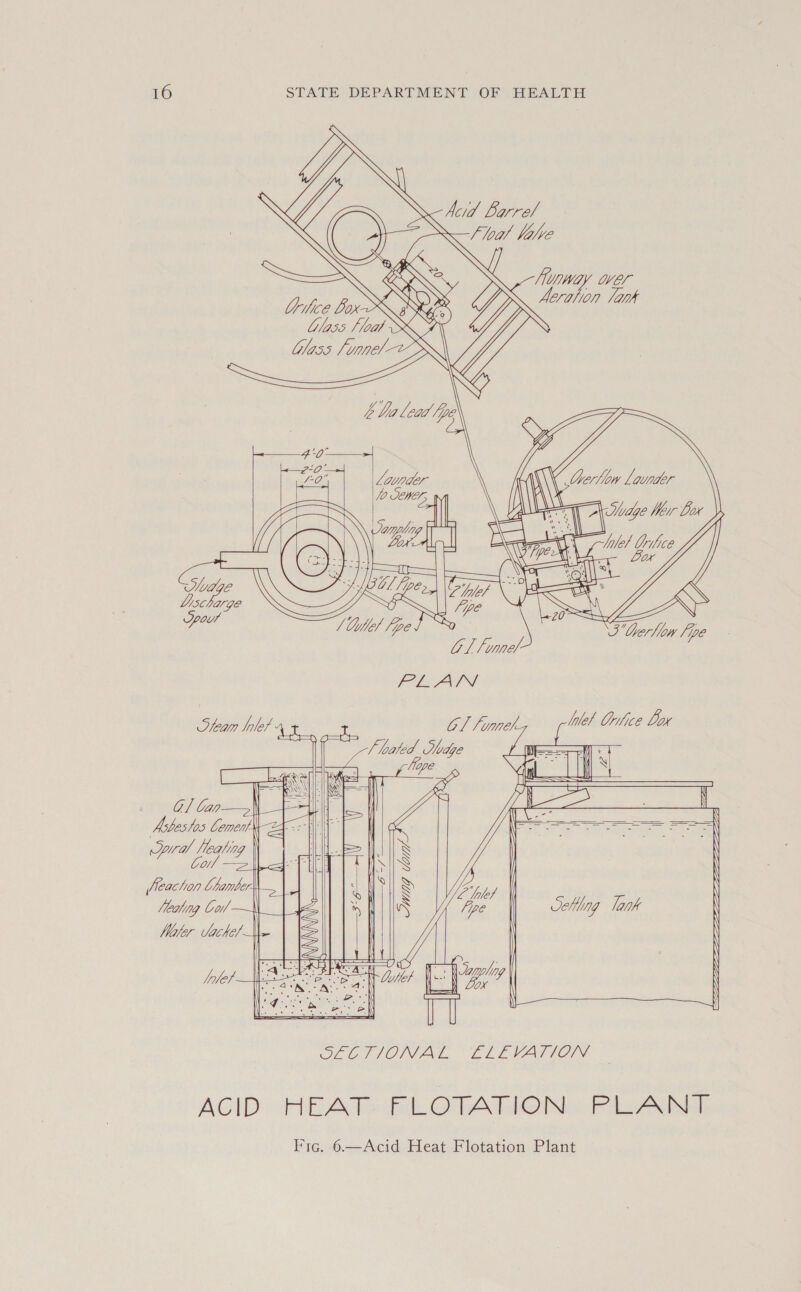 16
STATE DEPARTMENT OF HEALTH
Acid Barrel
Float Valve
20"
Runway over
Aeration Tank
Orifice Box
8"
Glass Float
Glass Funnel
½" Dia Lead Pipe
4'-0"
2'-0"
1'-0"
Launder
to Sewer
Overflow Launder
Sludge Weir Box
Sampling
Box
3" Pipe
Inlet Orifice
Box
8"
Sludge
Discharge
Spout
3" G I Pipe
2" Inlet
Pipe
1" Outlet Pipe
20"
3" Overflow Pipe
G I Funnel
PLAN
Steam Inlet
G I Funnel
Inlet Orifice Box
Floated Sludge
Rope
G I Can
Asbestos Cement
Spiral Heating
Coil
Reaction Chamber
Heating Coil
Water Jacket
Inlet
3'-9"
6'-1"
Swing Joint
2" Inlet
Pipe
Settling Tank
Outlet
Sampling
Box
SECTIONAL ELEVATION
ACID HEAT FLOTATION PLANT
FIG. 6.—Acid Heat Flotation Plant